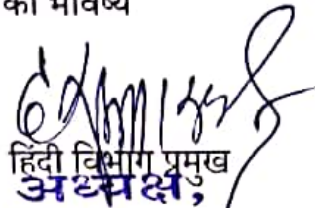 का भविष्य
हिंदी विभाग प्रमुख
अध्यक्ष,